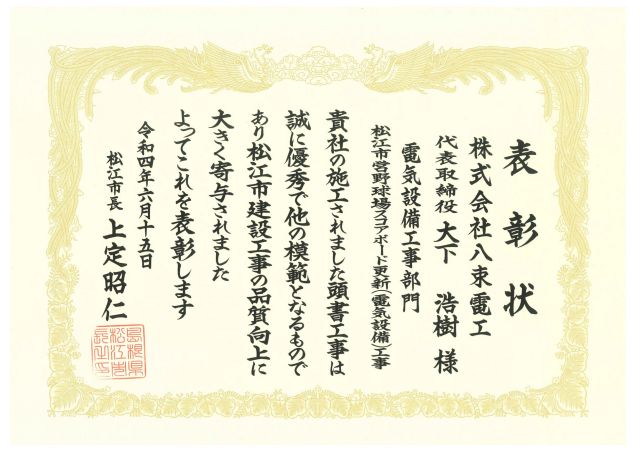 表彰状
株式会社八束電工
代表取締役 大下 浩樹 様
電気設備工事部門
松江市営野球場スコアボード更新(電気設備)工事
貴社の施工されました頭書工事は
誠に優秀で他の模範となるもので
あり松江市建設工事の品質向上に
大きく寄与されました
よってこれを表彰します
令和四年六月十五日
松江市長 上定昭仁
島根県
松江市
長之印